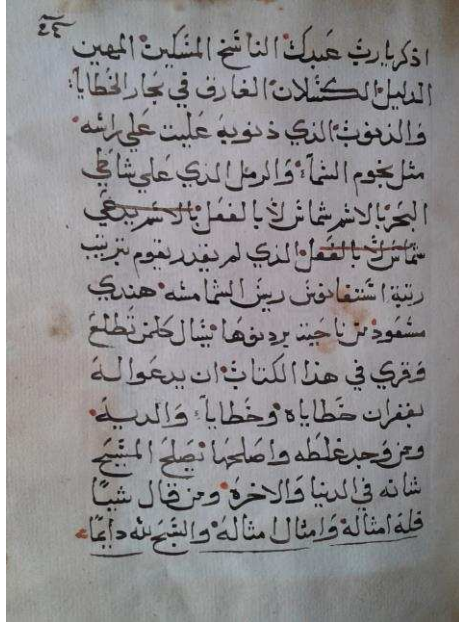 ٤٤
اذكر يارب عبدك الناسخ المسكين المهين
الدليل الكسلان الغارق في بحار الخطايا
والذنوب الذي ذنوبه عليت علي راسه
مثل نجوم السماء والرمل الذي علي شاطي
البحر بالاسم شماس لا بالفعل بالاسم يدعي
شماس لا بالفعل الذي لم يقدر يقوم بترتيب
رتبة استفانوس ريس الشمامسه هندي
مسعود من ناحيت يسال كلمن تطلع
وقري في هذا الكتاب ان يدعوا له
بغفران خطاياه وخطايا والديه
ومن وجد غلطه واصلحها يصلح المسيح
شانه في الدنيا والاخرة ومن قال شيا
فله امثاله وامثال امثاله والسبح لله دايما